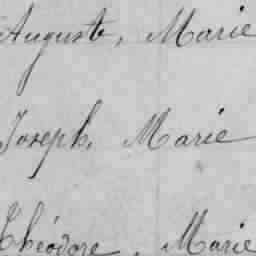 Auguste, Marie
Joseph, Marie
Théodore, Marie